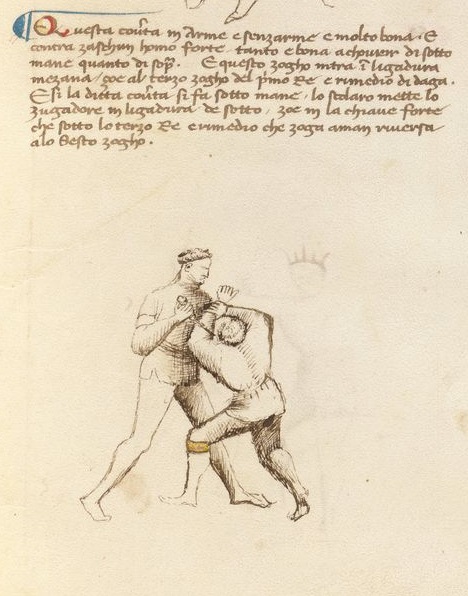 Questa coverta in arme e senzarme e molto bona. E
contra zaschun homo forte tanto e bona a chovrir di sotto
mane quanto di sopra. E questo zogho intra in ligadura
mezana, zoe al terzo zogho del primo Re e rimedio di daga.
E si la ditta coverta si fa sotto mane, lo scolaro mette lo
zugadore in ligadura de sotto, zoe in la chiave forte
che sotto lo terzo Re e rimedio che zoga a man riversa
a lo sesto zogho.